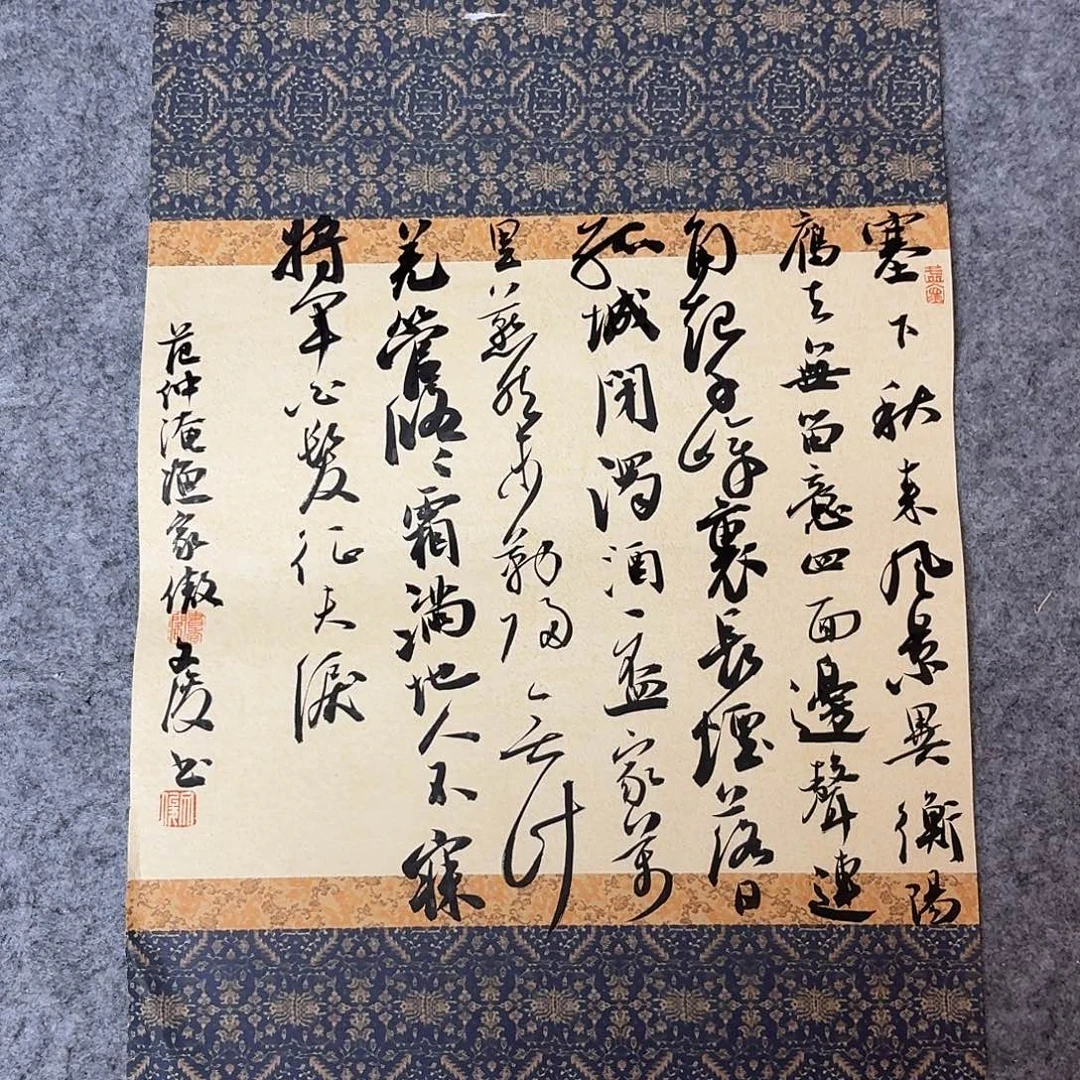 塞下秋来風景異衡陽
鴈去無留意四面邊聲連
角起千嶂裏長煙落日
孤城閉濁酒一盃家萬
里燕然未勒歸無計
羌管悠〻霜滿地人不寐
將軍白髮征夫淚
范仲淹漁家傲 文书